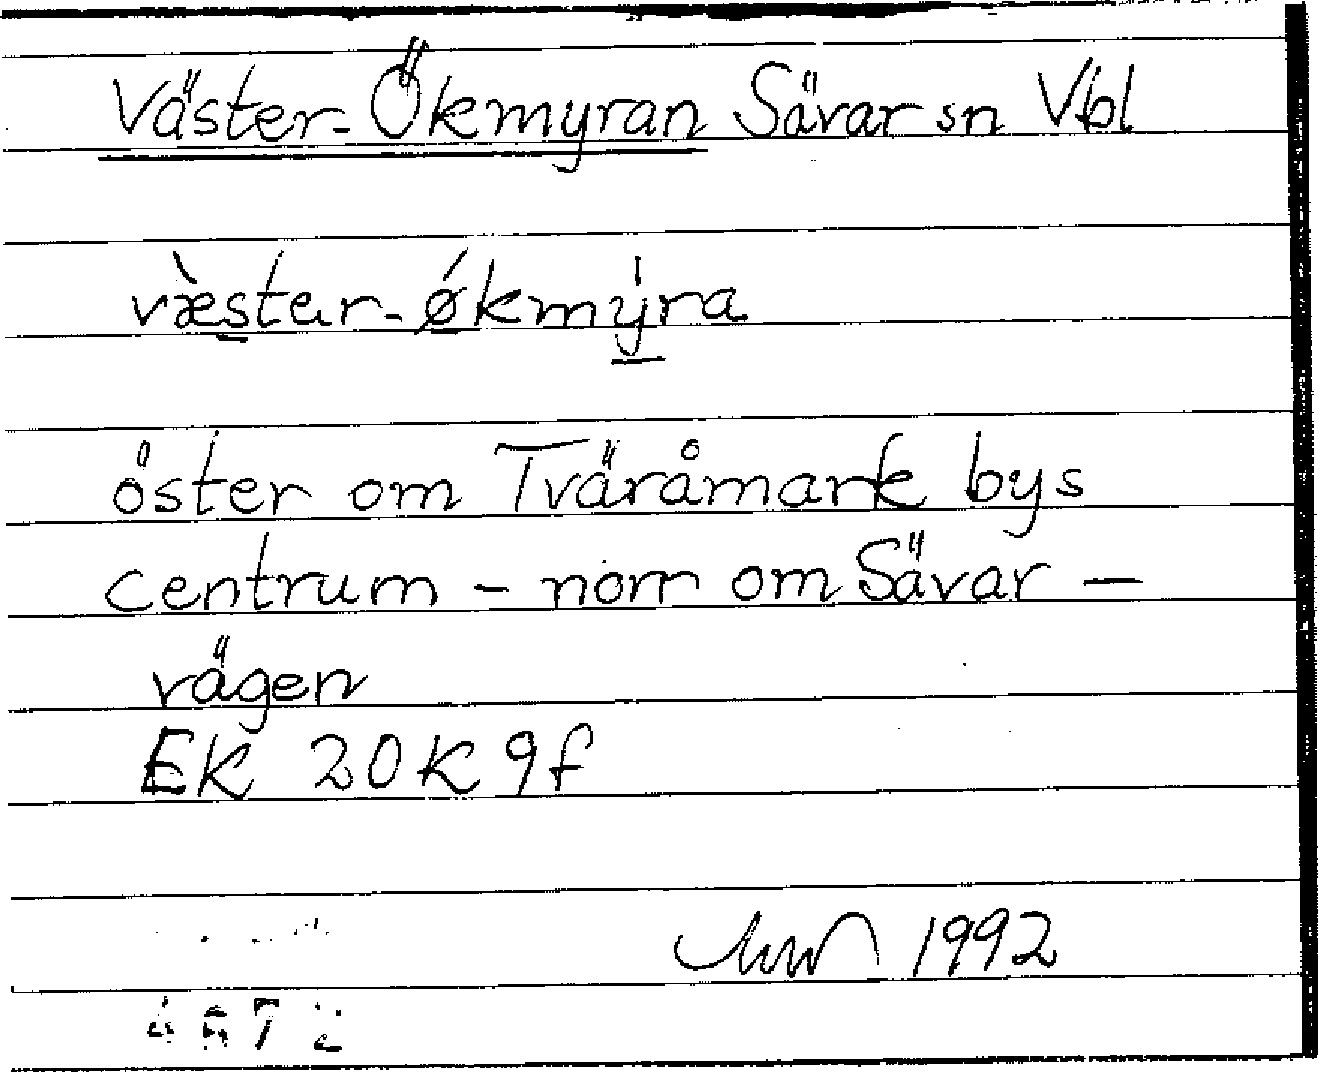 Väster-Ökmyran Sävar sn Vbl
væ̀star-ǿkmýra
öster om Tväråmark bys
centrum - norr om Sävar -
vägen
EK 20K 9f
1992